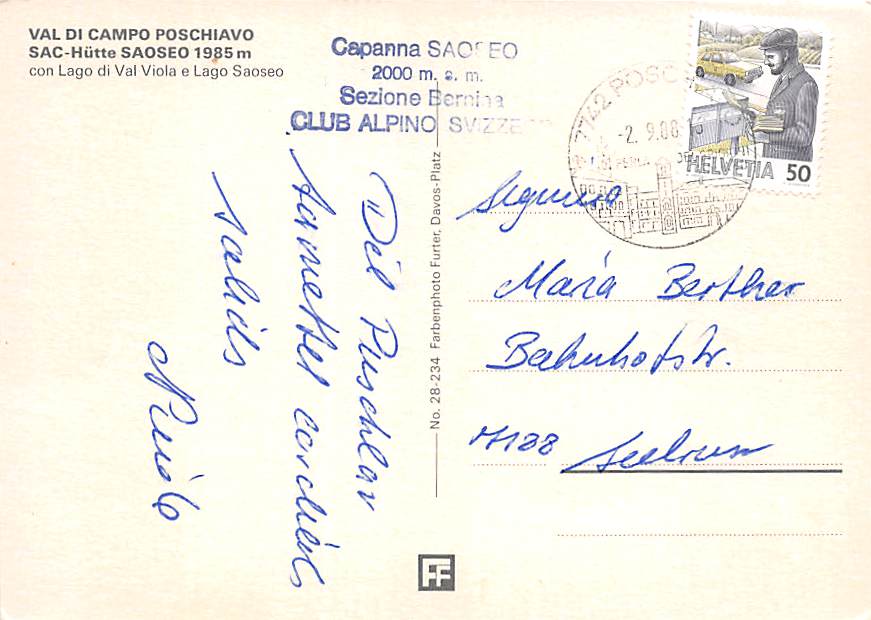 VAL DI CAMPO POSCHIAVO
SAC-Hütte SAOSEO 1985 m
con Lago di Val Viola e Lago Saoseo
Capanna SAOSEO
2000 m. s. m.
Sezione Bernina
CLUB ALPINO SVIZZE
7742 POSC
-2. 9.88
HELVETIA 50
Dil Puschlav
cordials
salids
No. 28-234 Farbenphoto Furter, Davos-Platz
Signura
Maria Berther
Bahnhofstr.
7188 Sedrun
FF